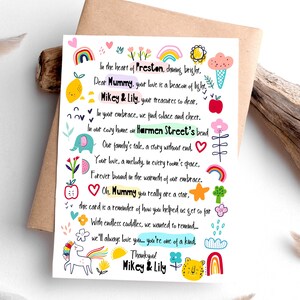 In the heart of Preston, shining bright,
Dear Mummy, your love is a beacon of light,
Mikey & Lily, your treasures so dear,
In your embrace, we find solace and cheer.
In our cozy home on Harmen Street's bend
Our family's tale, a story without end.
Your love, a melody, in every room's space,
Forever bound in the warmth of our embrace.
Oh, Mummy you really are a star,
this card is a reminder of how you helped us get so far
With endless cuddles, we wanted to remind...
we'll always love you... you're one of a kind.
Thankyou!
Mikey & Lily